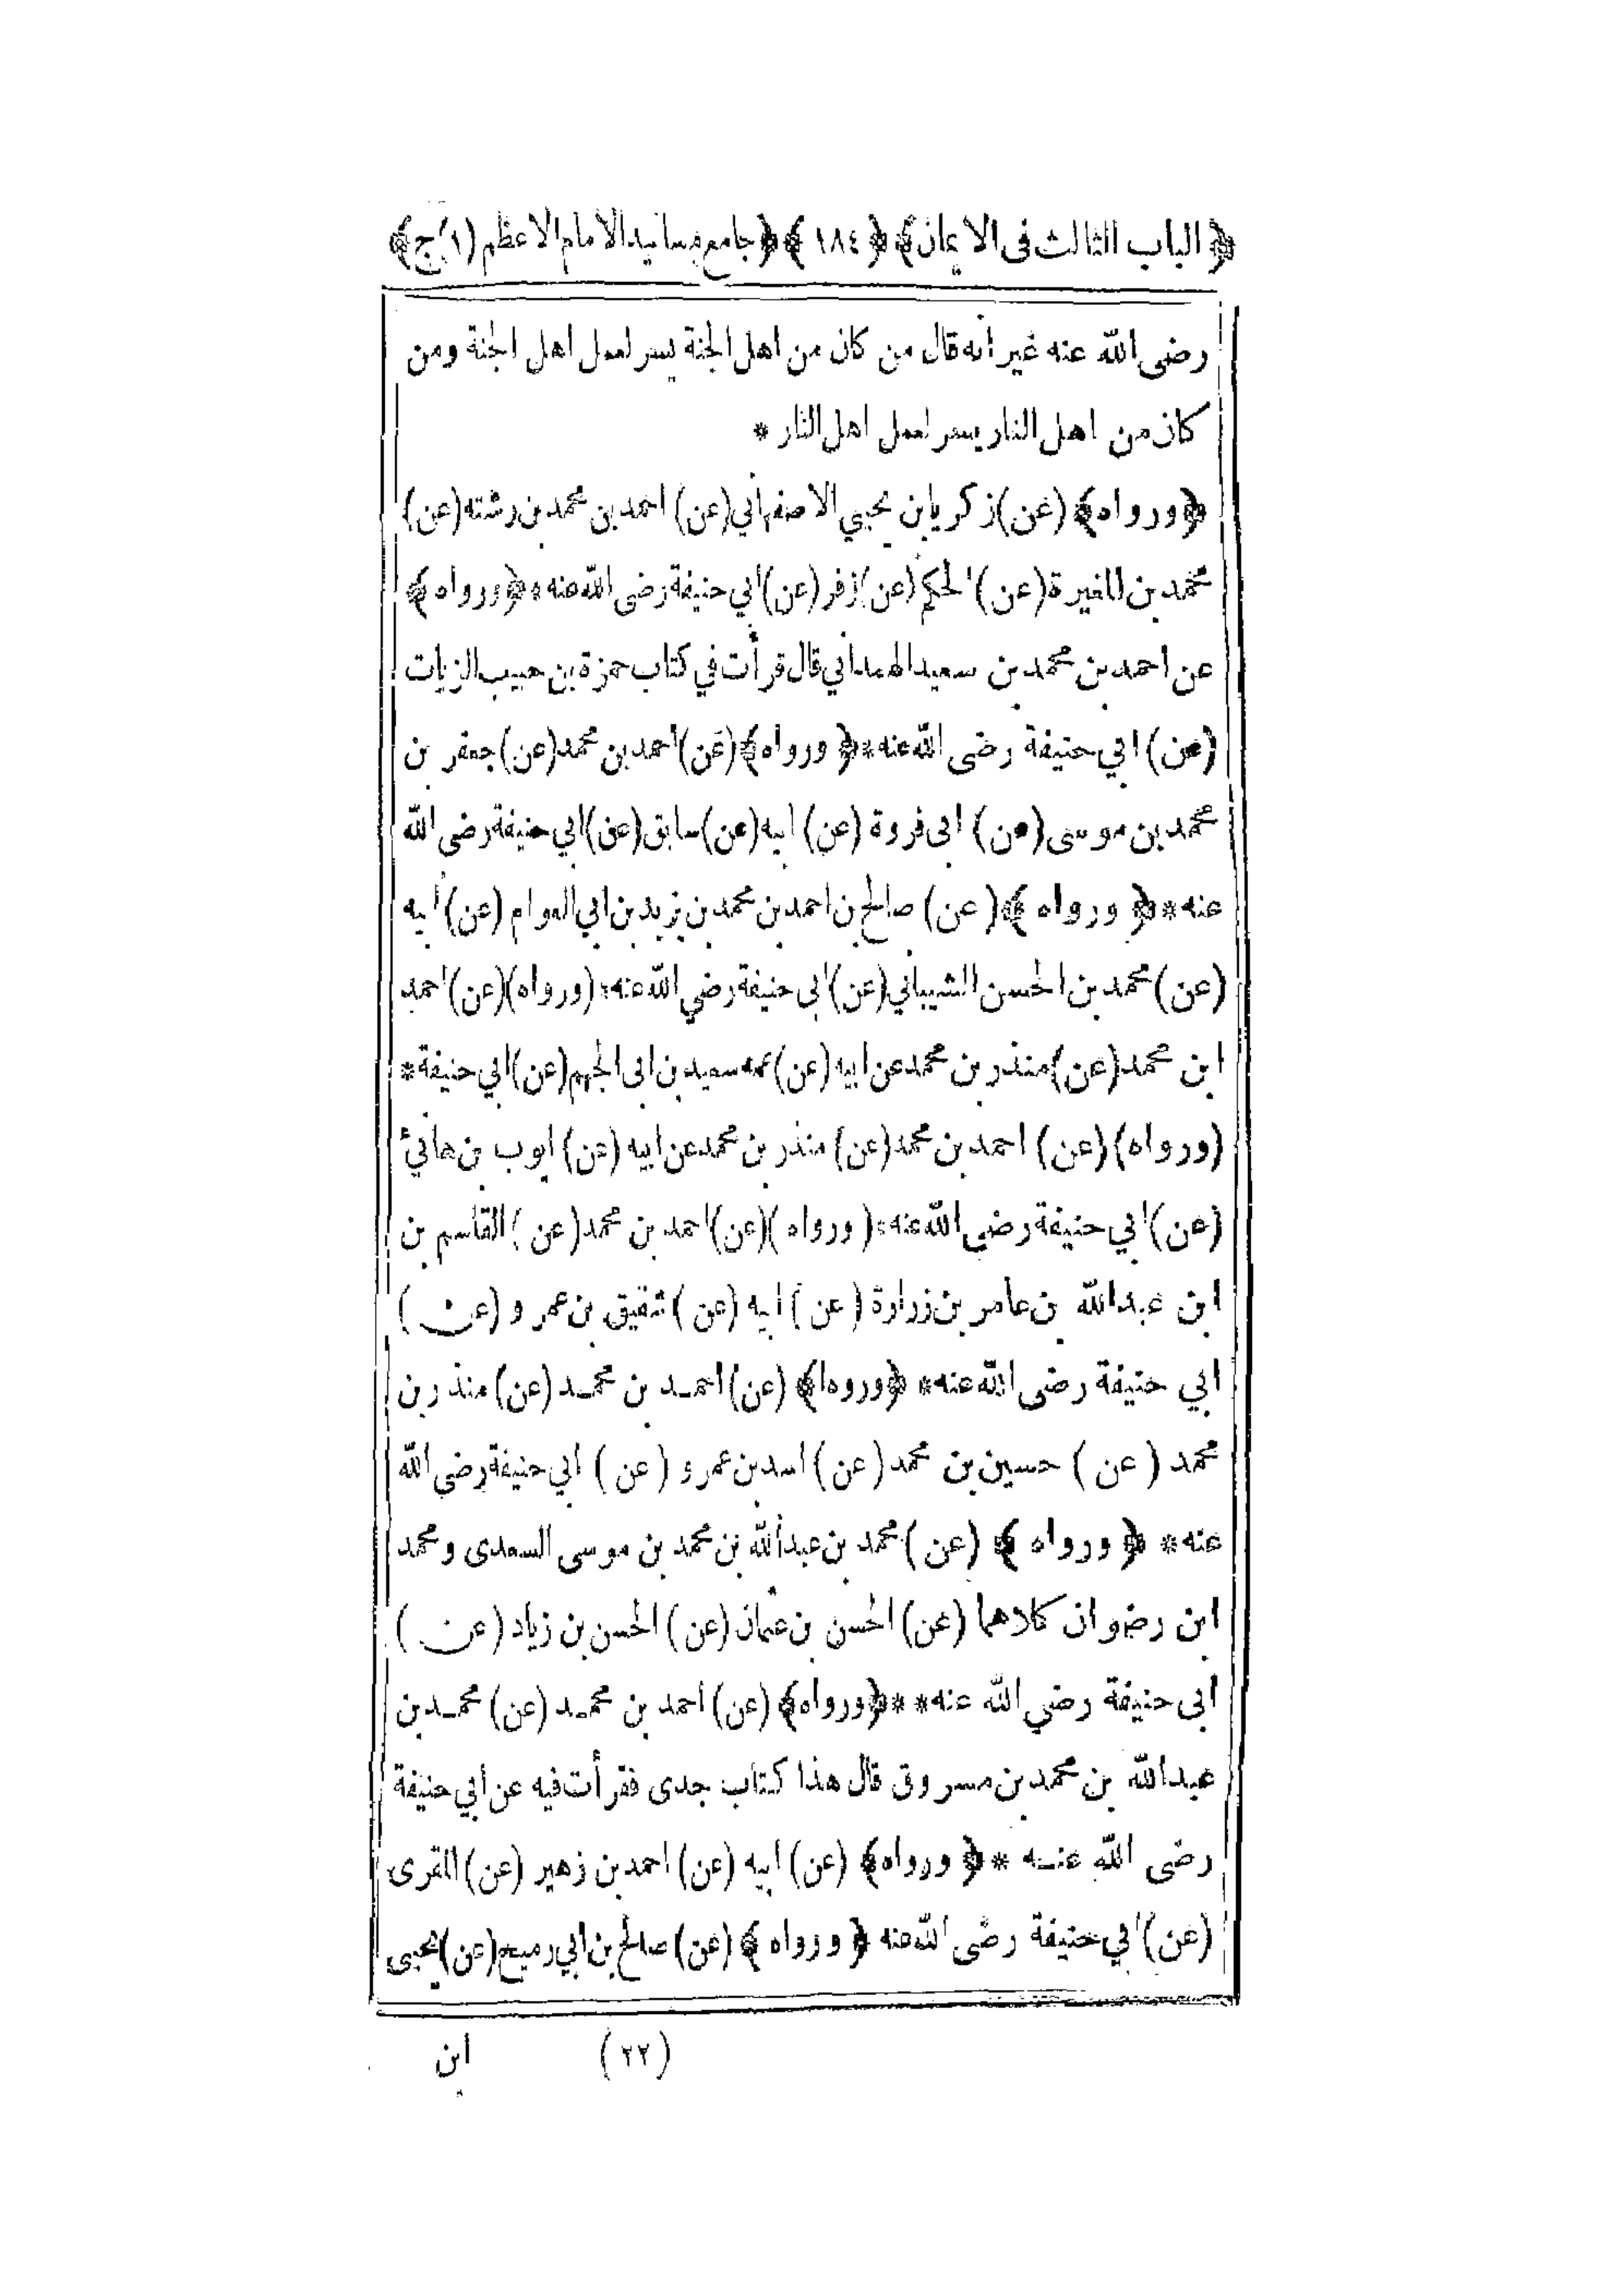 ﴿الباب الثالث فى الايمان﴾ ﴿١٨٤﴾ ﴿جامع مسانيد الامام الاعظم (١/ج)﴾
رضى الله عنه غير أنه قال من كان من اهل الجنة يسر لعمل اهل الجنة ومن
كان من اهل النار يسر لعمل اهل النار *
﴿ورواه﴾ (عن) زكريا بن يحيي الاصفهاني (عن) احمد بن محمد بن رشته (عن)
محمد بن المغيرة (عن) الحكم (عن) زفر (عن) ابي حنيفة رضى الله عنه * ﴿ورواه﴾
عن احمد بن محمد بن سعيد الهمداني قال قرأت في كتاب حمزة بن حبيب الزيات
(عن) ابي حنيفة رضى الله عنه * ﴿ورواه﴾ (عن) احمد بن محمد (عن) جعفر بن
محمد بن موسى (عن) ابى فروة (عن) ابيه (عن) سابق (عن) ابي حنيفة رضى الله
عنه * ﴿ورواه﴾ (عن) صالح بن احمد بن محمد بن يزيد بن ابي العوام (عن) ابيه
(عن) محمد بن الحسن الشيباني (عن) ابى حنيفة رضي الله عنه * (ورواه) (عن) احمد
ابن محمد (عن) منذر بن محمد عن ابيه (عن) عمه سعيد بن ابى الجهم (عن) ابي حنيفة *
(ورواه) (عن) احمد بن محمد (عن) منذر بن محمد عن ابيه (عن) ايوب بن هانيء
(عن) ابي حنيفة رضى الله عنه * (ورواه) (عن) احمد بن محمد (عن) القاسم بن
ابن عبدالله بن عامر بن زرارة (عن) ابيه (عن) شقيق بن عمرو (عن)
ابي حنيفة رضى الله عنه * ﴿وروه﴾ (عن) احمد بن محمد (عن) منذر بن
محمد (عن) حسين بن محمد (عن) اسد بن عمرو (عن) ابي حنيفة رضى الله
عنه * ﴿ورواه﴾ (عن) محمد بن عبدالله بن محمد بن موسى السعدى ومحمد
ابن رضوان كلاهما (عن) الحسن بن عثمان (عن) الحسن بن زياد (عن)
ابى حنيفة رضي الله عنه * * ﴿ورواه﴾ (عن) احمد بن محمد (عن) محمد بن
عبدالله بن محمد بن مسروق قال هذا كتاب جدى فقرأت فيه عن أبي حنيفة
رضى الله عنه * ﴿ورواه﴾ (عن) ابيه (عن) احمد بن زهير (عن) المقرى
(عن) ابي حنيفة رضى الله عنه ﴿ورواه﴾ (عن) صالح بن ابي رميح (عن) يحيى
(٢٢) ابن